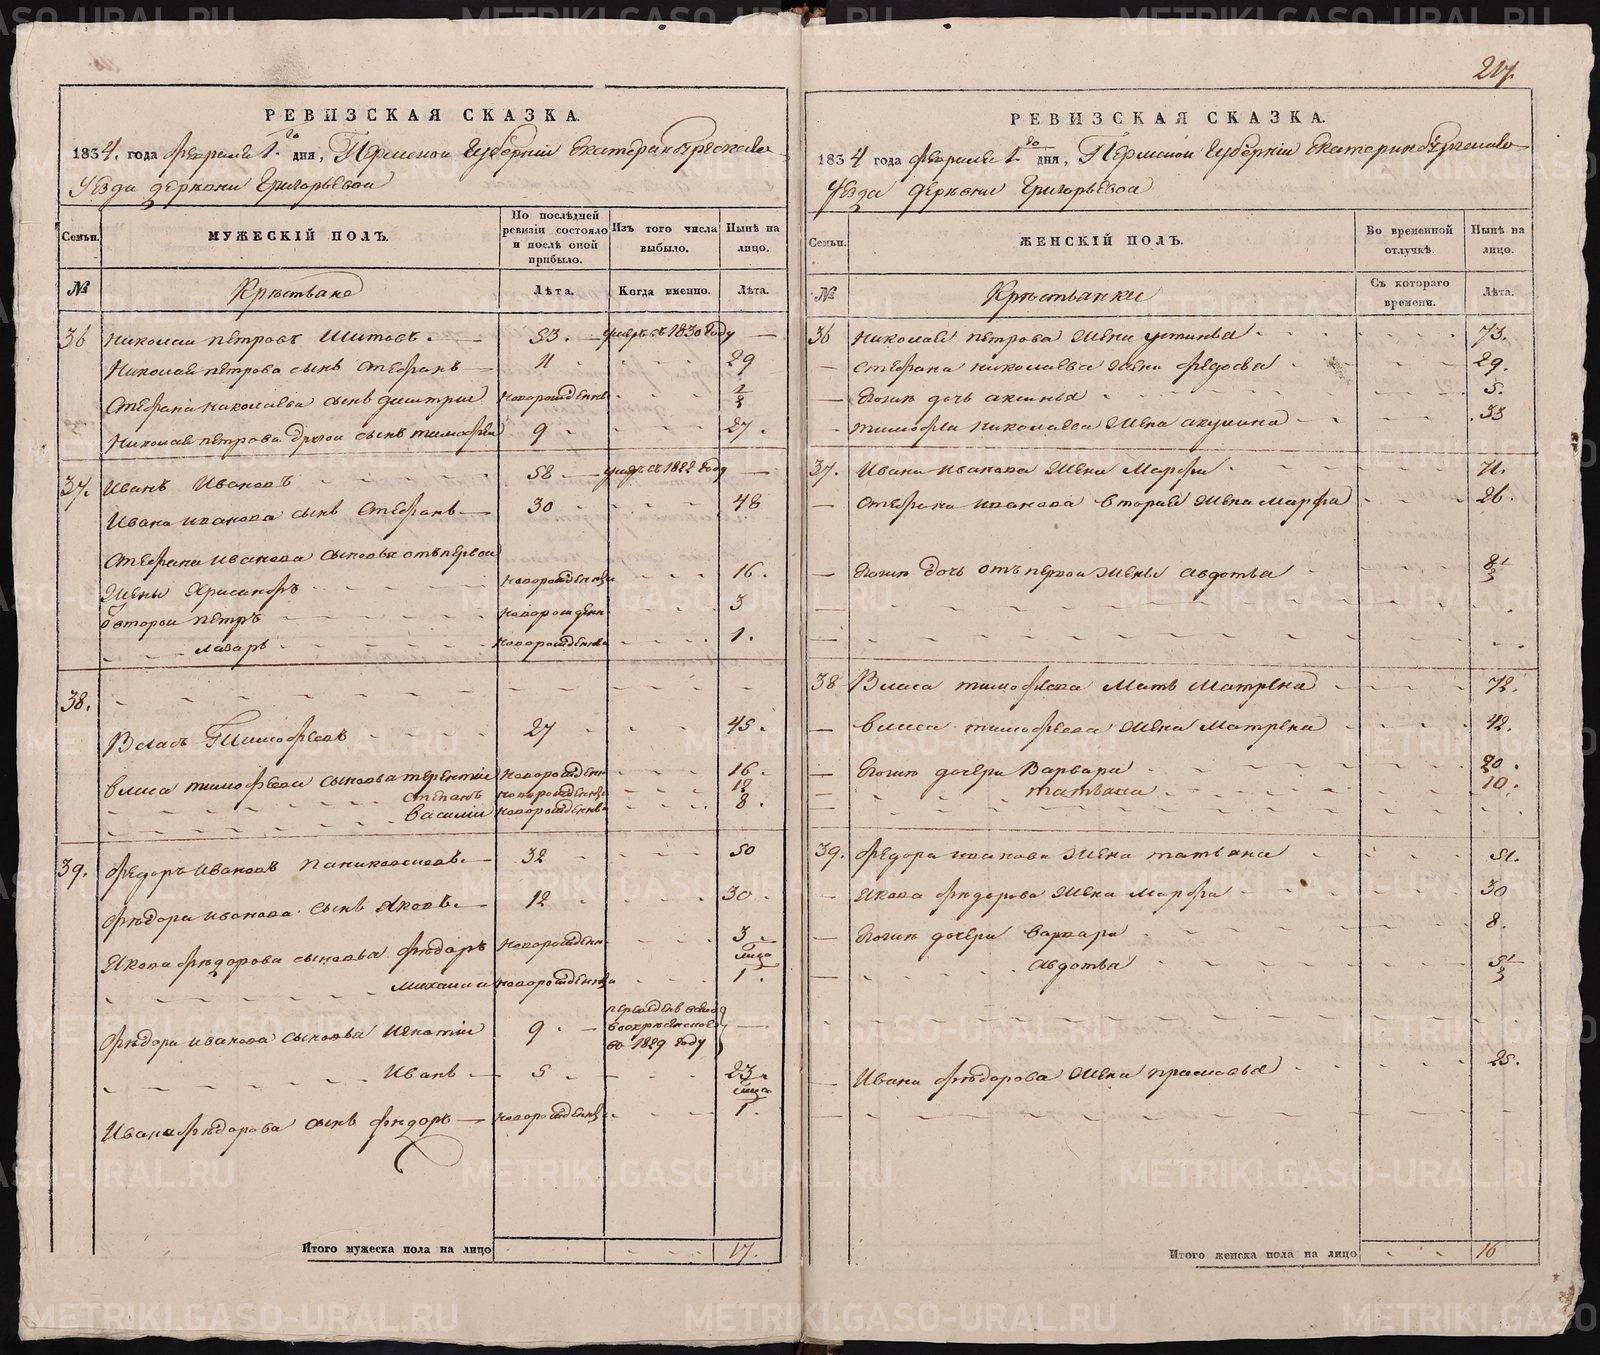 217.
РЕВИЗСКАЯ СКАЗКА.
1834. года февраля 1го дня, Пермской Губерніи Екатеринбургскаго
Уезда деревни Григорьевой
Семьи.
МУЖЕСКІЙ ПОЛЪ.
По послѣдней ревизіи состояло и послѣ оной прибыло.
Изъ того числа выбыло.
Нынѣ на лицо.
№
Крѣстьяне
Лѣта.
Когда именно.
Лѣта.
36 Николай петровъ Шитовъ. 53. умеръ въ 1830 году
Николая петрова сынъ Стефанъ 11 29
Стефана николаева сынъ дмитрий новорожденъ 1/2
Николая петрова другой сынъ тимофей 9 27.
37. Иванъ Ивановъ 58 умеръ въ 1822 году
Ивана иванова сынъ Стефанъ 30 48
Стефана иванова сыновья отъ первой
Жены Хрисанфъ новорожденны 16.
второй петръ новорожденн 3
лазарь новорожденны 1.
38.
Власъ Тимофеевъ 27 45.
Власа тимофеева сыновья терентій новорожденн 16.
степанъ новорожденны 12
василій новорожденны 8.
39. федоръ ивановъ 32 50
Фѣдора иванова сынъ Яковъ. 12 30.
Якова фѣдорова сыновья фѣдоръ новорожденн 3.
михаила новорожденны 1.
Фѣдора иванова сыновья игнатій 9.
во 1829 году
Иванъ 5 23.
Ивана фѣдорова сынъ фѣдоръ новорожденны 1.
Итого мужеска пола на лицо 17.
РЕВИЗСКАЯ СКАЗКА.
1834 года февраля 1го дня, Пермской Губерніи Екатеринбургскаго
Уезда деревни Григорьевой
Семьи.
ЖЕНСКІЙ ПОЛЪ.
Во временной отлучкѣ.
Нынѣ на лицо.
№
Крѣстьянки
Съ котораго времени.
Лѣта.
36 Николая петрова Жена устинья 73.
Стефана николаева жена федосья 29.
Егожъ дочь аксинья 5.
тимофея николаева жена акулина 33
37. Ивана иванова жена Марфа 71.
Стефана иванова вторая жена марфа 26.
Егожъ дочь отъ первой жены авдотья 8 1/2
38 Власа тимофеева Мать Матрена 72.
власа тимофеева жена Матрена 42.
Егожъ дочери Варвара 20.
татьяна 10.
39. федора иванова жена татьяна 51.
Якова фѣдорова жена марфа 30
Егожъ дочери варвара 8.
авдотья 5 1/2
Ивана фѣдорова жена прасковья 25.
Итого женска пола на лицо 16
METRIKI.GASO-URAL.RU